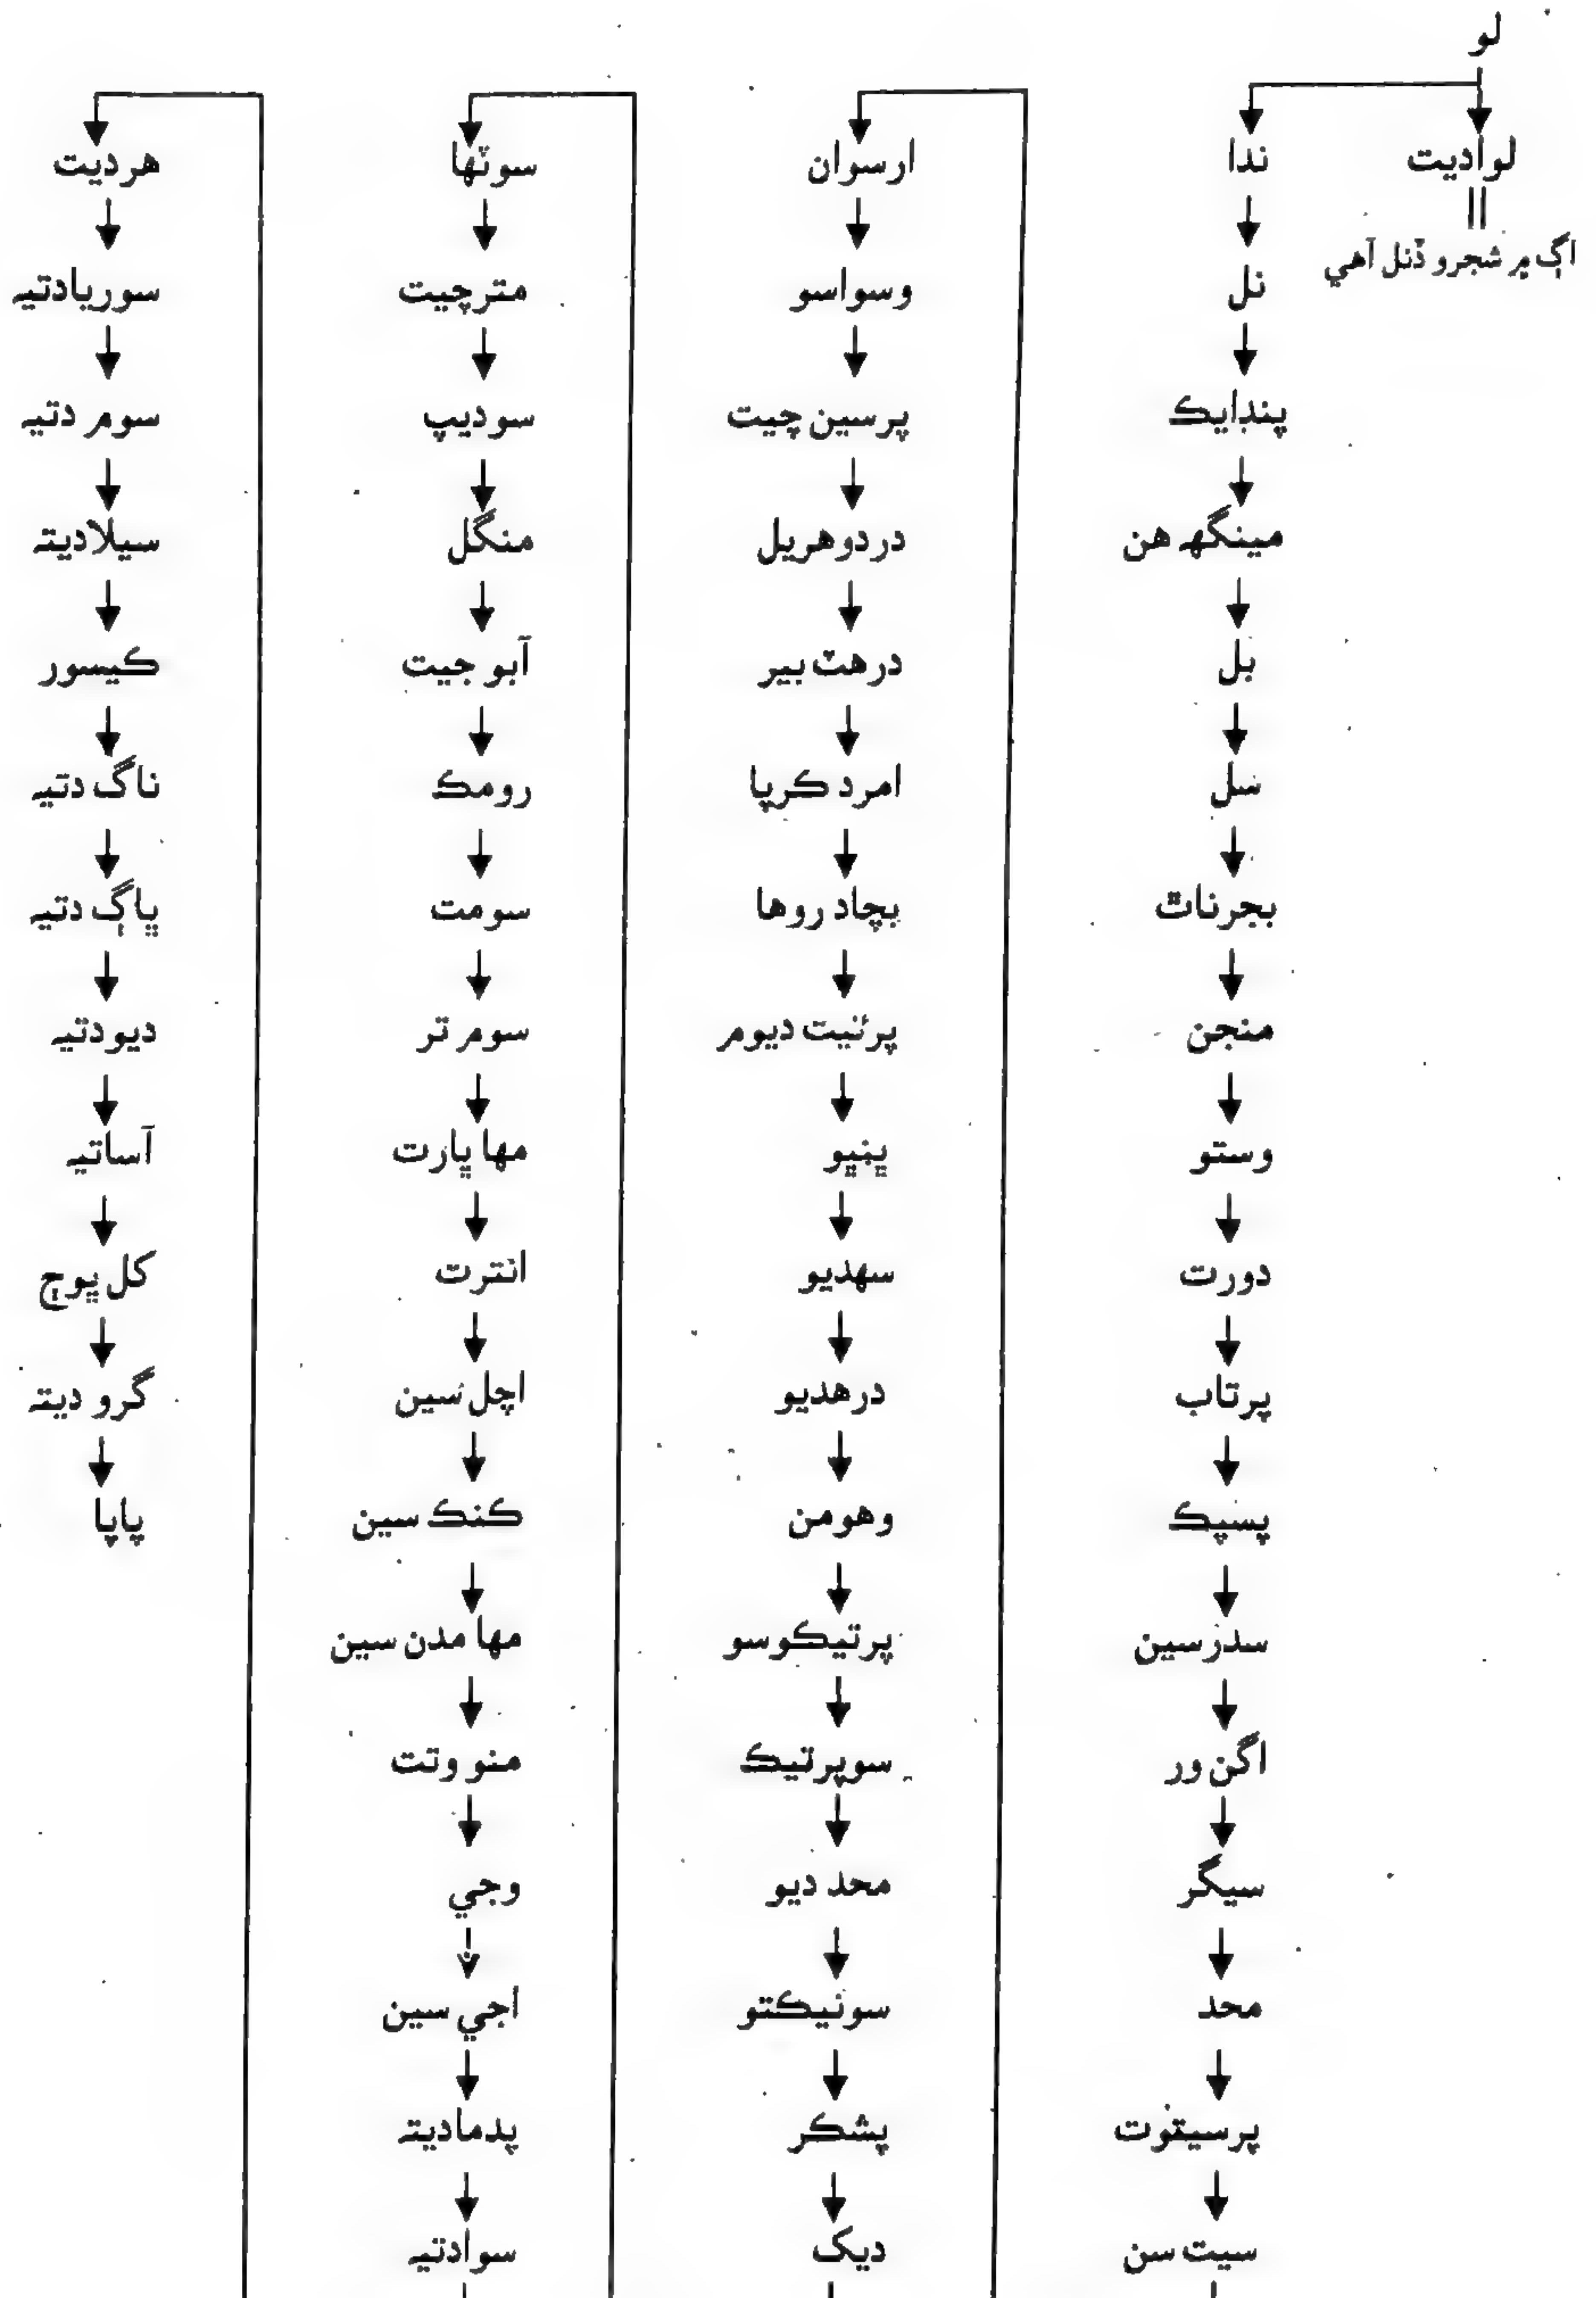 لو
لوآديت
اڳ ۾ شجرو ڏنل آهي
ندا
نل
پنڊايڪ
مينگھ هن
بل
سل
بجرناٿ
منجن
وستو
دورت
پرتاب
پسپڪ
سدرسين
اگن ور
سيگر
محد
پرسيتوت
سيت سن
ارسوان
وسواسو
پرسين چيت
دردوهريل
درهٽ بير
امرد ڪرپا
بچاد روها
پرئنيت ديوم
ڀنڀو
سهديو
درهديو
وهومن
پرتيڪوسو
سوپرتيڪ
محد ديو
سونيڪتو
پشڪر
ديک
سوٽها
مترچيت
سوديپ
منگل
آبو جيت
رومڪ
سومت
سوم تر
مها ڀارت
انترت
اچل سين
ڪنڪ سين
مها مدن سين
منو وتت
وجي
اجي سين
پدماديتہ
سوادتيہ
هرديت
سوريادتيہ
سوم دتيہ
سيلاديتہ
ڪيسور
ناگ دتيہ
ڀاڳ دتيہ
ديودتيہ
آساتيہ
کل ڀوڄ
گرو ديتہ
پاپا